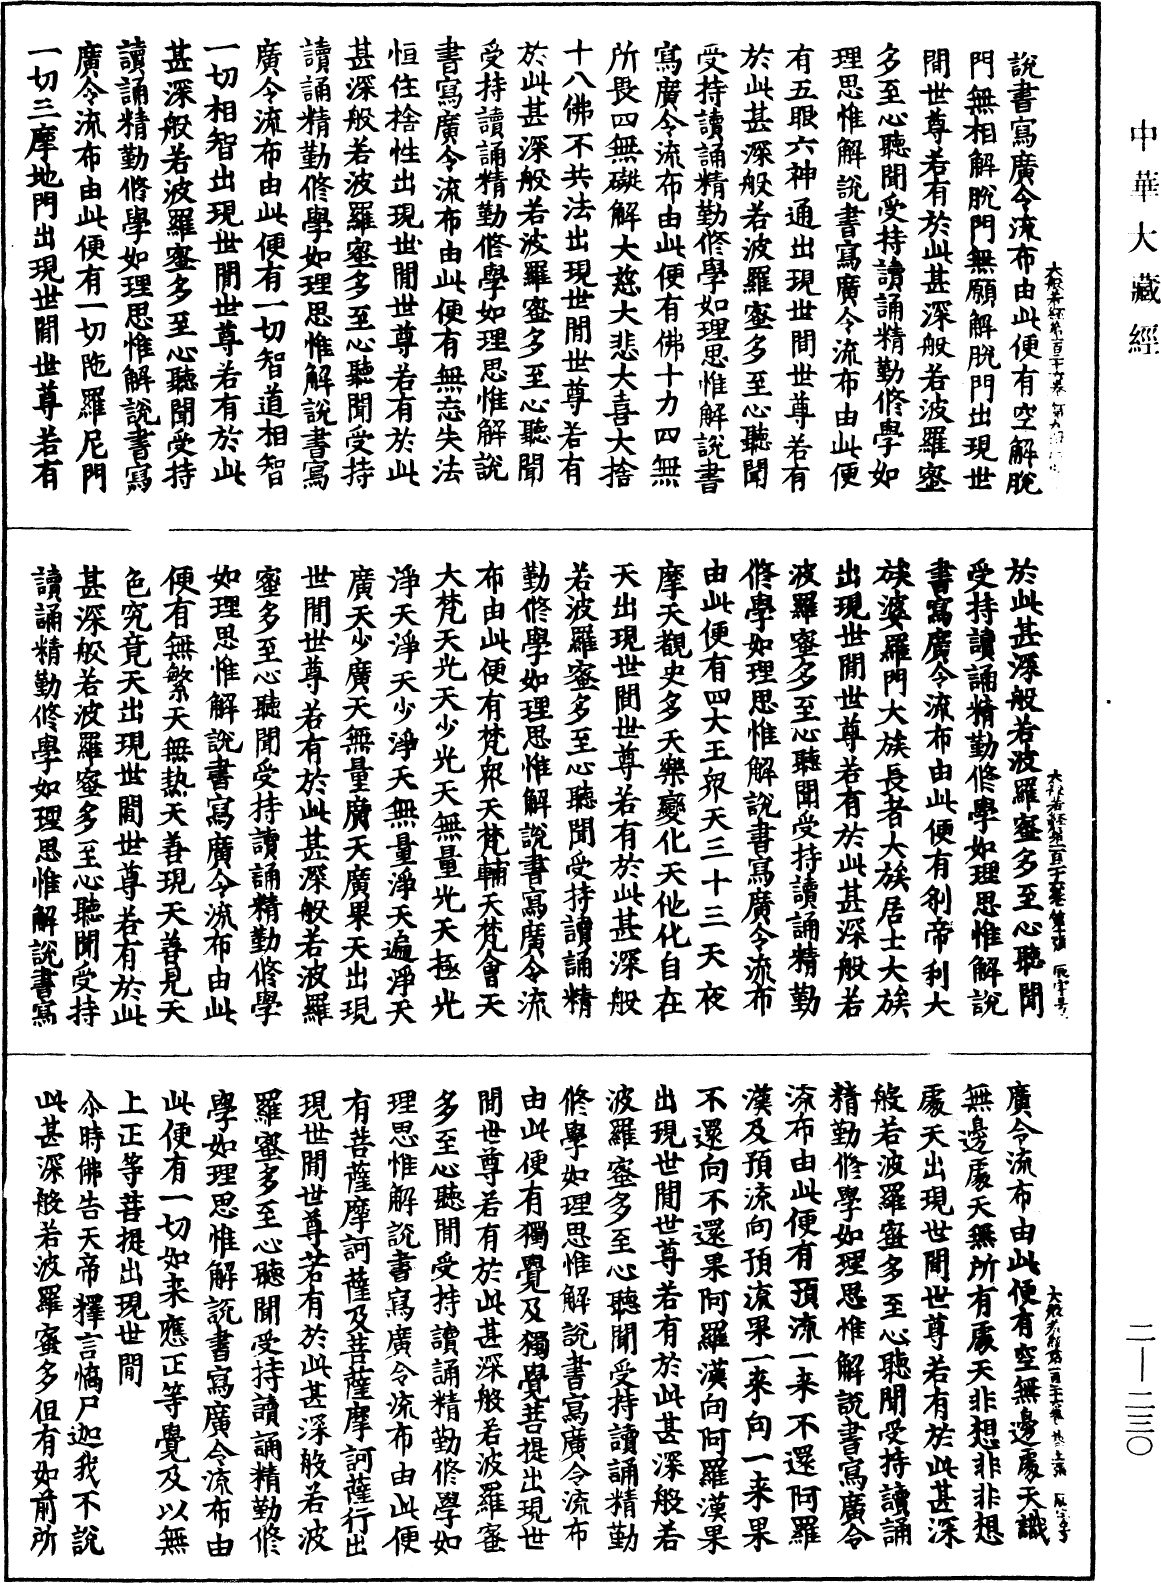 中華大藏經
說書寫廣令流布由此便有空解脫
門無相解脫門無願解脫門出現世
間世尊若有於此甚深般若波羅蜜
多至心聽聞受持讀誦精勤修學如
理思惟解說書寫廣令流布由此便
有五眼六神通出現世間世尊若有
於此甚深般若波羅蜜多至心聽聞
受持讀誦精勤修學如理思惟解說書
寫廣令流布由此便有佛十力四無
所畏四無礙解大慈大悲大喜大捨
十八佛不共法出現世間世尊若有
於此甚深般若波羅蜜多至心聽聞
受持讀誦精勤修學如理思惟解說
書寫廣令流布由此便有無忘失法
恒住捨性出現世間世尊若有於此
甚深般若波羅蜜多至心聽聞受持
讀誦精勤修學如理思惟解說書寫
廣令流布由此便有一切智道相智
一切相智出現世間世尊若有於此
甚深般若波羅蜜多至心聽聞受持
讀誦精勤修學如理思惟解說書寫
廣令流布由此便有一切陁羅尼門
一切三摩地門出現世間世尊若有
於此甚深般若波羅蜜多至心聽聞
受持讀誦精勤修學如理思惟解說
書寫廣令流布由此便有剎帝利大
族婆羅門大族長者大族居士大族
出現世間世尊若有於此甚深般若
波羅蜜多至心聽聞受持讀誦精勤
修學如理思惟解說書寫廣令流布
由此便有四大王衆天三十三天夜
摩天覩史多天樂變化天他化自在
天出現世間世尊若有於此甚深般
若波羅蜜多至心聽聞受持讀誦精
勤修學如理思惟解說書寫廣令流
布由此便有梵衆天梵輔天梵會天
大梵天光天少光天無量光天極光
淨天淨天少淨天無量淨天遍淨天
廣天少廣天無量廣天廣果天出現
世間世尊若有於此甚深般若波羅
蜜多至心聽聞受持讀誦精勤修學
如理思惟解說書寫廣令流布由此
便有無繁天無熱天善現天善見天
色究竟天出現世間世尊若有於此
甚深般若波羅蜜多至心聽聞受持
讀誦精勤修學如理思惟解說書寫
廣令流布由此便有空無邊處天識
無邊處天無所有處天非想非非想
處天出現世間世尊若有於此甚深
般若波羅蜜多至心聽聞受持讀誦
精勤修學如理思惟解說書寫廣令
流布由此便有預流一来不還阿羅
漢及預流向預流果一来向一来果
不還向不還果阿羅漢向阿羅漢果
出現世間世尊若有於此甚深般若
波羅蜜多至心聽聞受持讀誦精勤
修學如理思惟解說書寫廣令流布
由此便有獨覺及獨覺菩提出現世
間世尊若有於此甚深般若波羅蜜
多至心聽聞受持讀誦精勤修學如
理思惟解說書寫廣令流布由此便
有菩薩摩訶薩及菩薩摩訶薩行出
現世間世尊若有於此甚深般若波
羅蜜多至心聽聞受持讀誦精勤修
學如理思惟解說書寫廣令流布由
此便有一切如来應正等覺及以無
上正等菩提出現世間
尒時佛告天帝釋言憍尸迦我不說
此甚深般若波羅蜜多但有如前所
二—二三〇